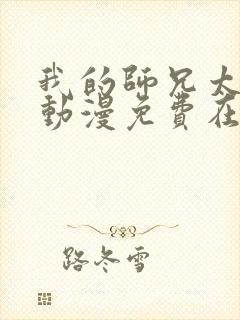 我的師兄太
動漫免費在
路冬雪